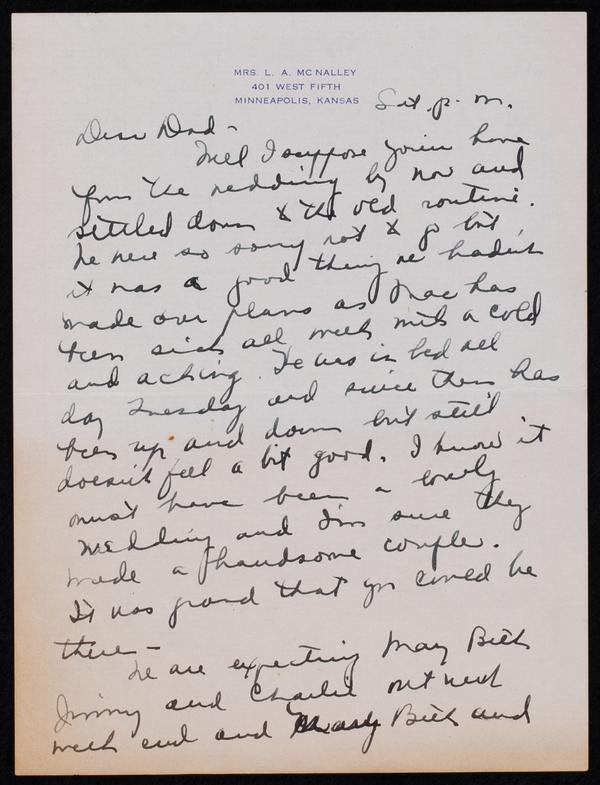 MRS. L. A. MCNALLEY
401 WEST FIFTH
MINNEAPOLIS, KANSAS
Sat. p. m.
Dear Dad -
Well I suppose you have
from the wedding by now and
settled down to the old routine.
We were so sorry not to go but
it was a good thing we hadn't
made our plans as Mac has
been sick all week with a cold
and aching. He was in bed all
day Tuesday and since then has
been up and down but still
doesn't feel a bit good. I know it
must have been a lovely
wedding and I'm sure they
made a handsome couple.
It was grand that you could be
there -
We are expecting Mary Beth
Jimmy and Charlie out next
week end and Mary Beth and